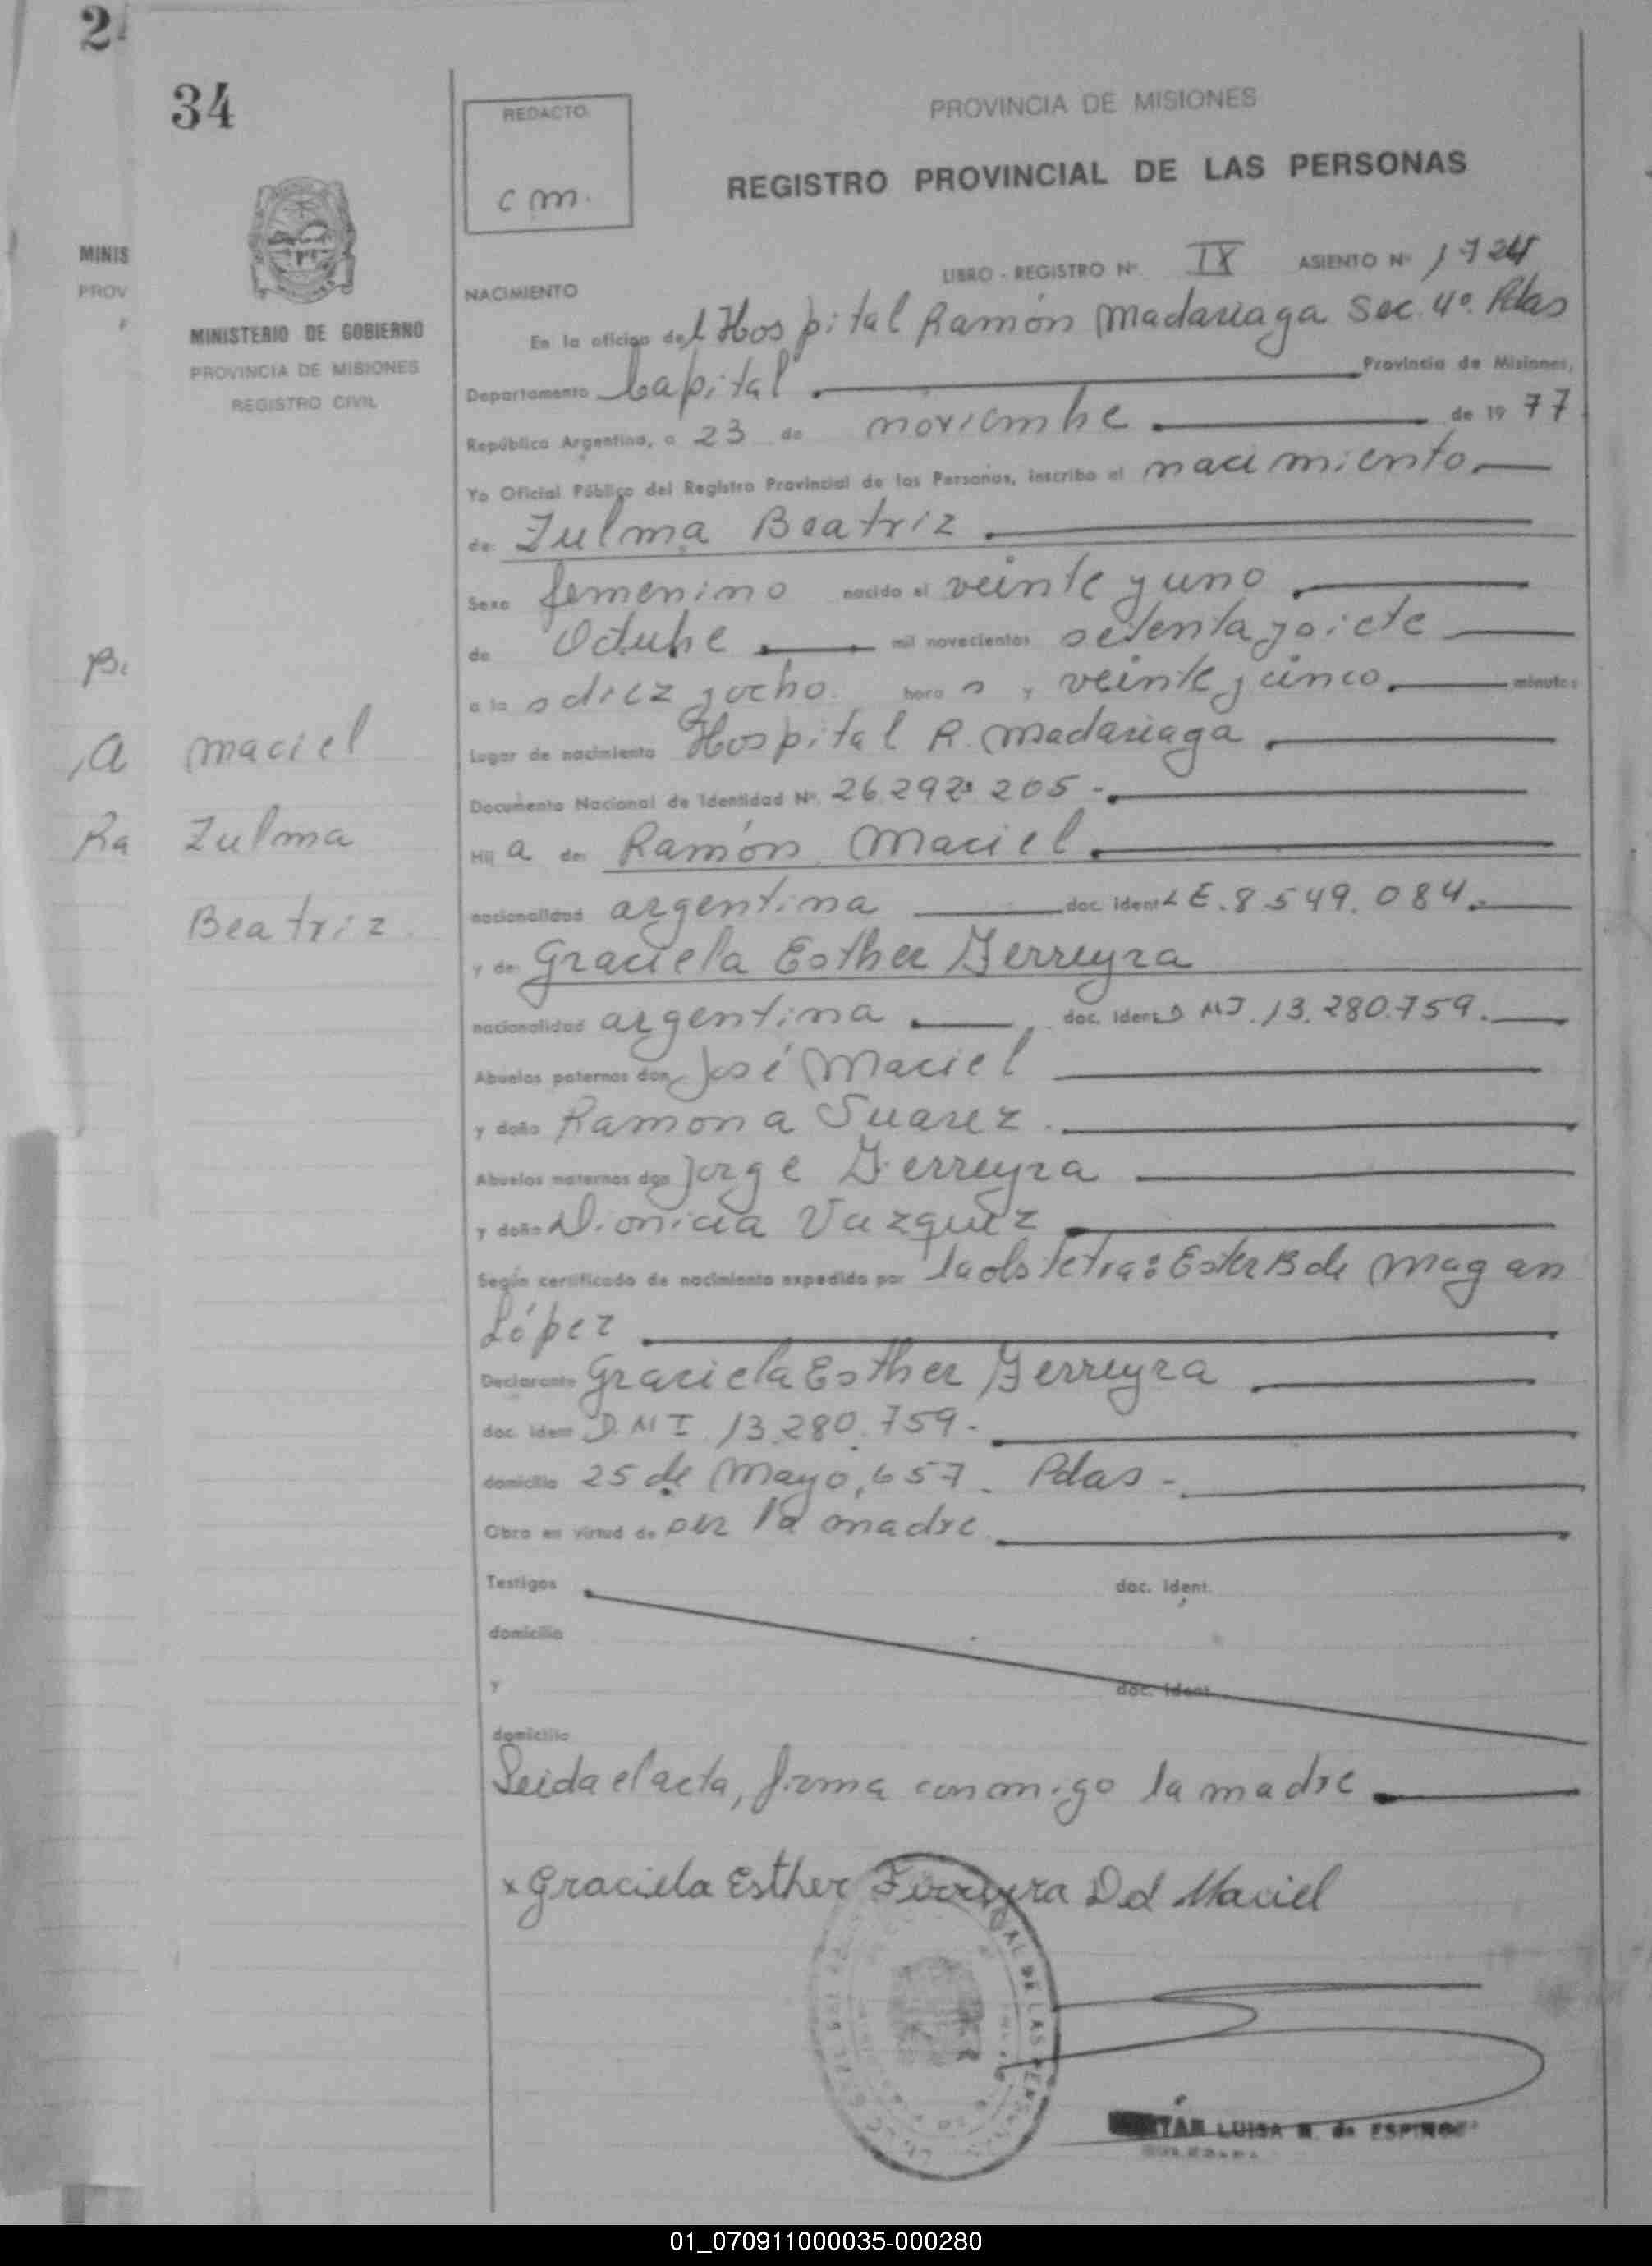 2
34
REDACTO
c m.
PROVINCIA DE MISIONES
REGISTRO PROVINCIAL DE LAS PERSONAS
MINIS
PROV
MINISTERIO DE GOBIERNO
PROVINCIA DE MISIONES
REGISTRO CIVIL
LIBRO - REGISTRO Nº IX ASIENTO Nº 1724
NACIMIENTO
En la oficina del Hospital Ramón Madariaga Sec. 4º. Pdas
Departamento Capital Provincia de Misiones,
República Argentina, a 23 de noviembre de 19 77
Yo Oficial Público del Registro Provincial de las Personas, inscribo el nacimiento
de: Zulma Beatriz
Sexo femenino nacido el veinte y uno
de Octubre mil novecientos setenta y siete
a la s diez y ocho hora s y veinte y cinco minutos
Lugar de nacimiento Hospital R. Madariaga
Documento Nacional de Identidad Nº. 26.292.205 -
Hij a de: Ramón Maciel
nacionalidad argentina doc. ident L E. 8.549.084.
y de: Graciela Esther Ferreyra
nacionalidad argentina doc. ident D NI. 13.280.759.
Abuelos paternos don José Maciel
y doña Ramona Suarez.
Abuelos maternos don Jorge Ferreyra
y doña Dionicia Vazquez
Según certificado de nacimiento expedido por la obstetra: Ester B de Magan
López
Declarante Graciela Esther Ferreyra
doc. ident D. N I. 13.280.759.-
domicilio 25 de Mayo, 657. Pdas -
Obra en virtud de ser la madre
Testigos doc. ident.
domicilio
y doc. ident.
domicilio
Leida el acta, firma conmigo la madre
x Graciela Esther Ferreyra De Maciel
maciel
Zulma
Beatriz
A
Ra
DE LAS PERSONAS
LUISA R. de ESPINO
01_070911000035-000280